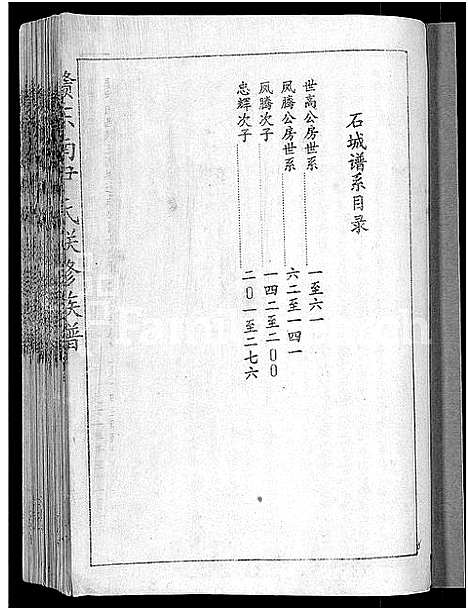 石城谱系目录
世高公房世系……一至六一
凤腾公房世系……六二至一四一
凤腾次子……一四二至二〇〇
忠辉次子……二〇一至二七六
赣东南尹氏联修族谱